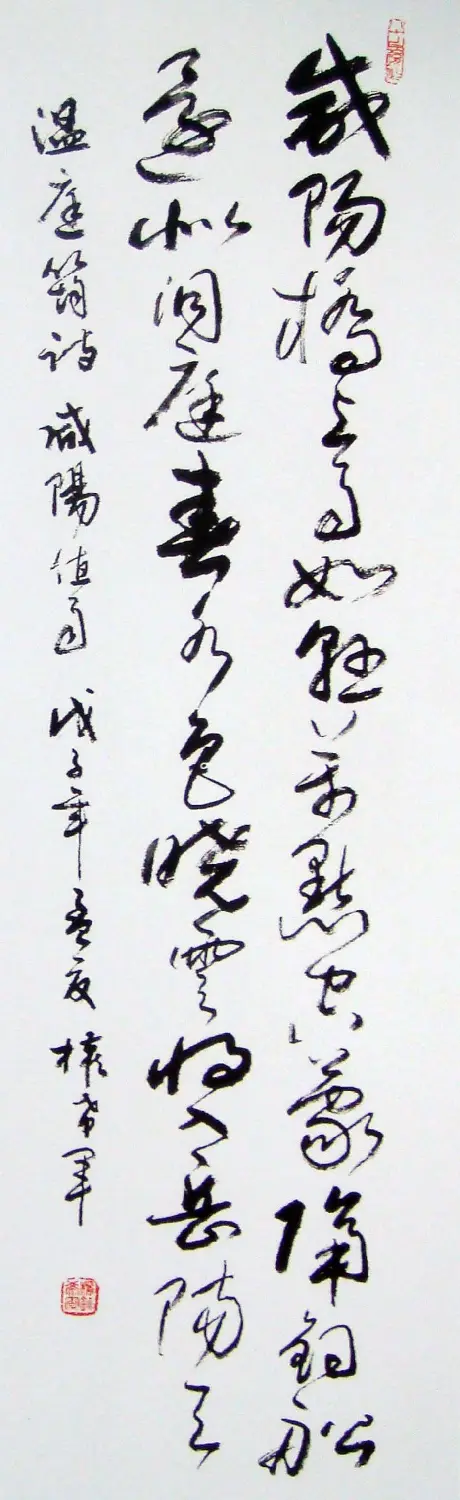 咸陽橋上雨如懸萬點空蒙隔釣船
還似洞庭春水色曉雲將入岳陽天
溫庭筠詩 咸陽值雨 戊子年孟夏 權希軍